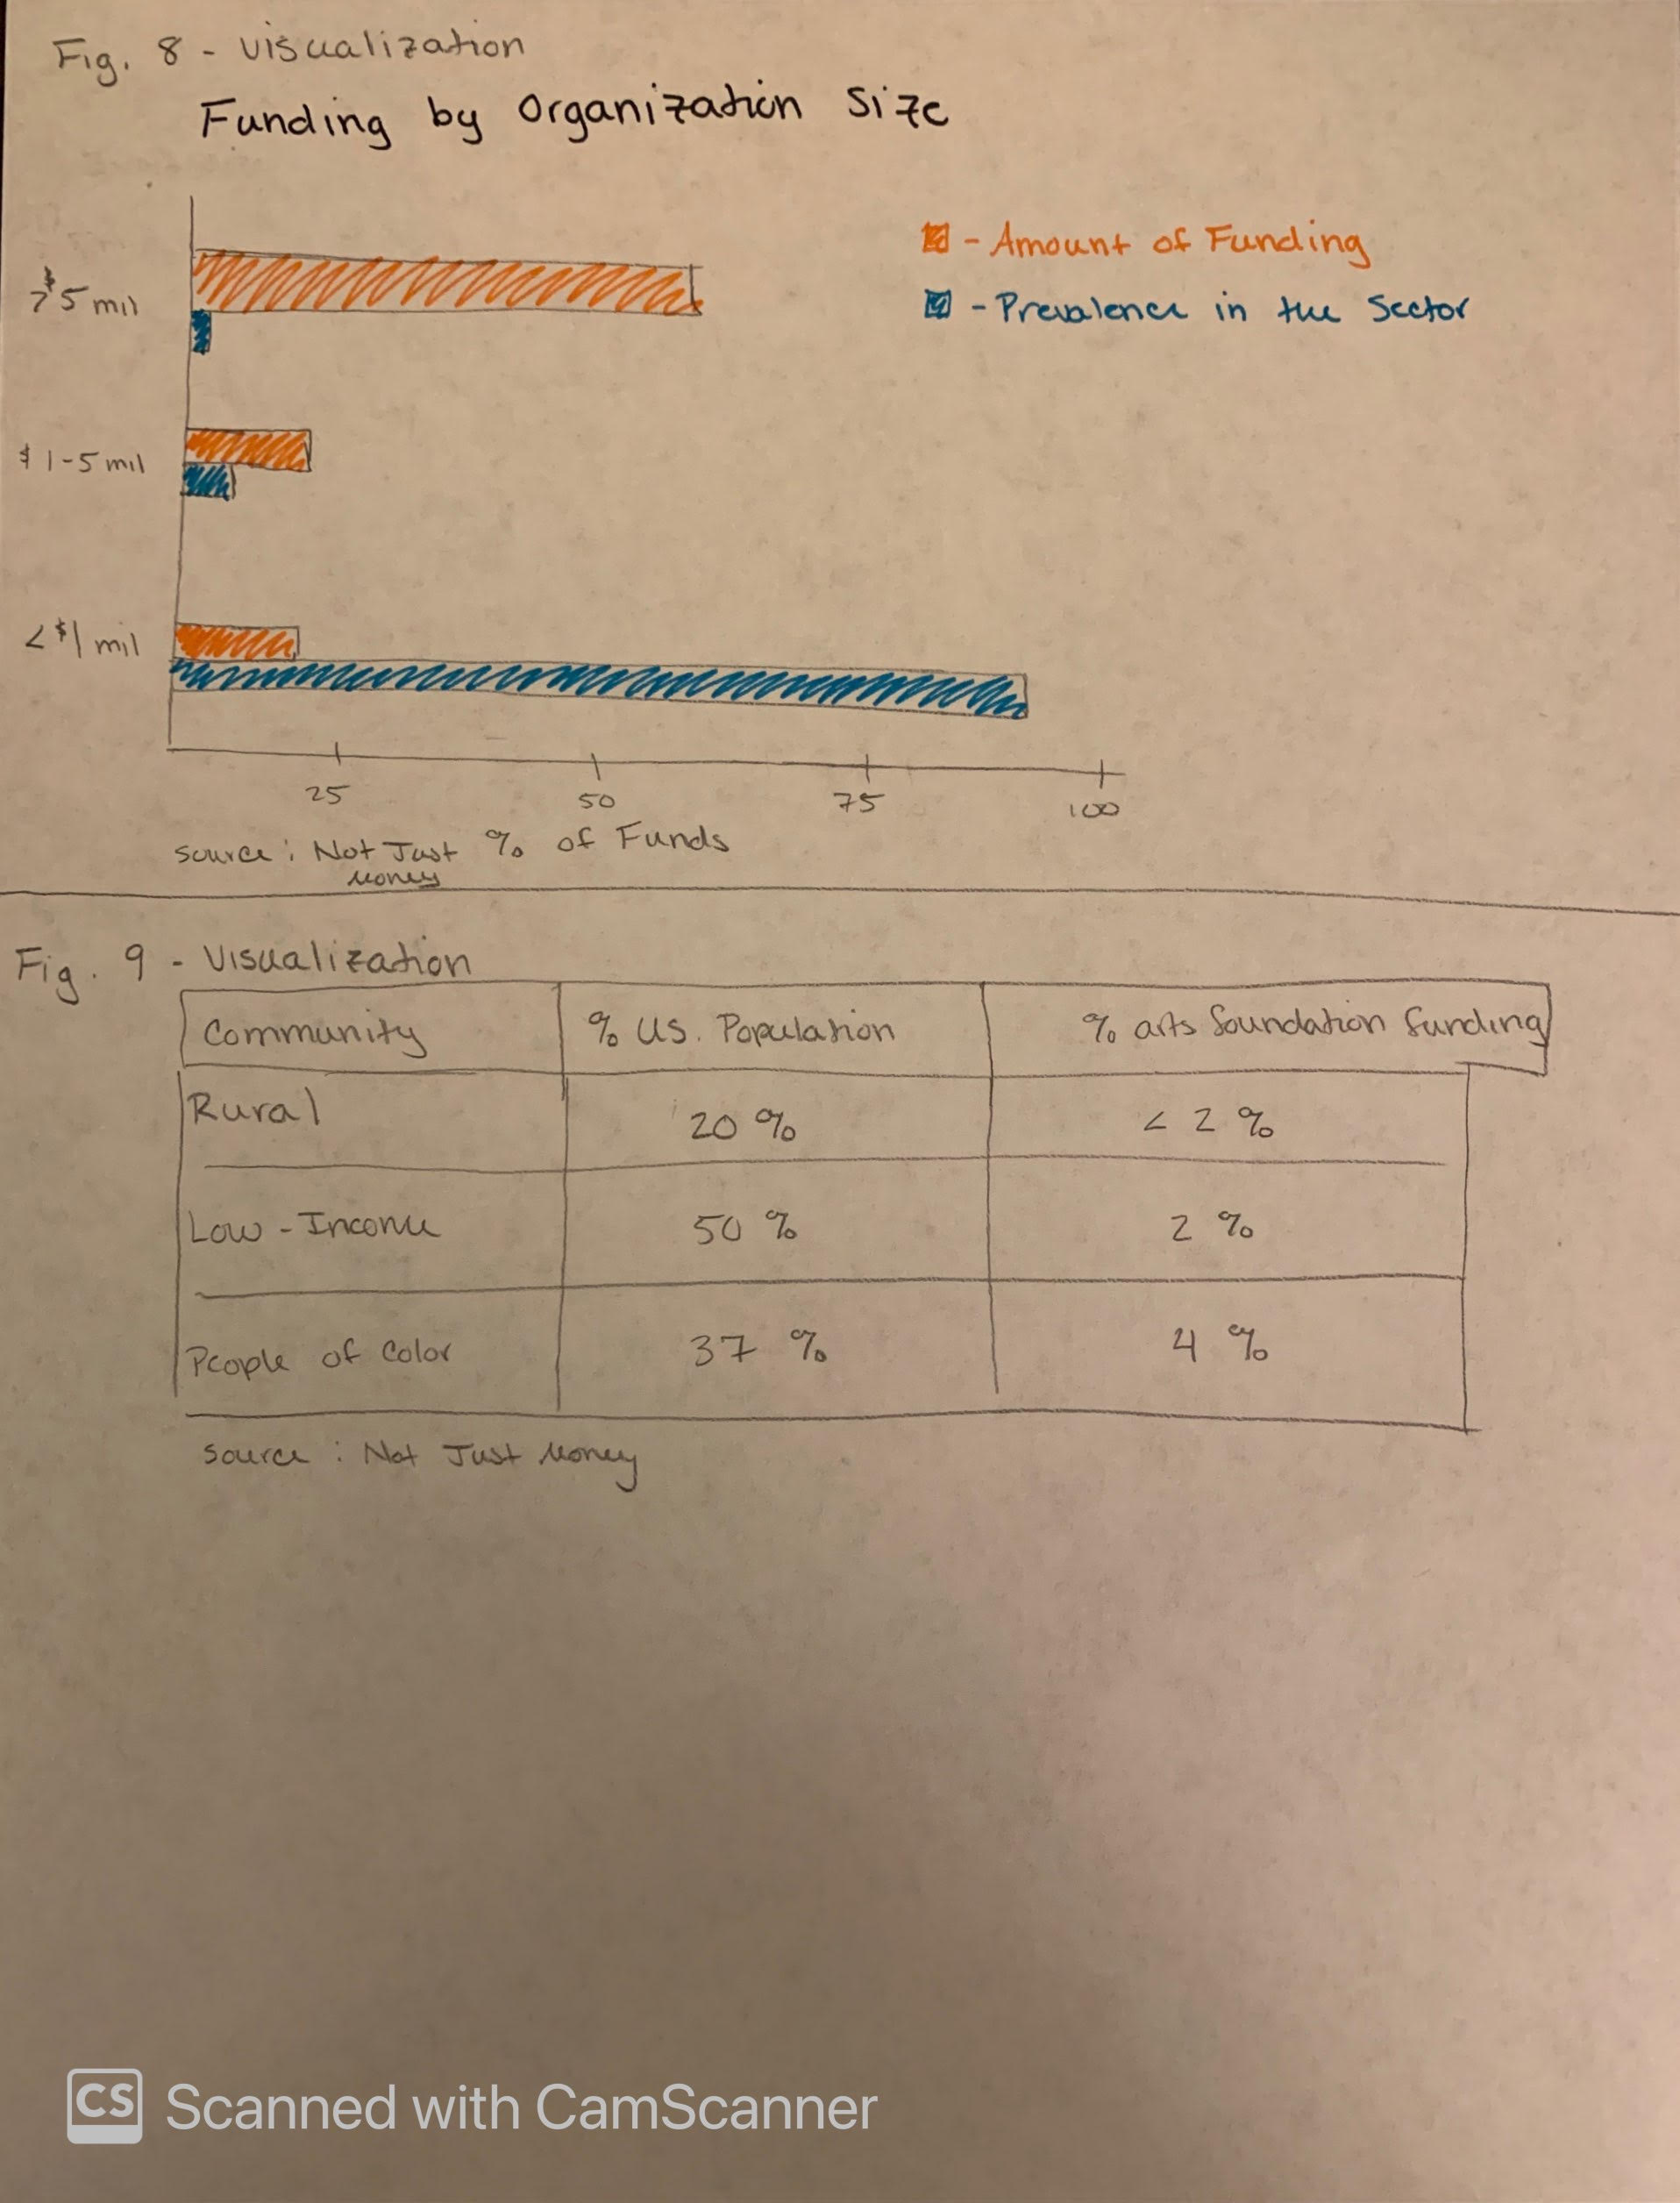 Fig. 8 - Visualization
Funding by Organization Size
- Amount of Funding
- Prevalence in the Sector
>$5 mil
$1-5 mil
<$1 mil
25 50 75 100
source: Not Just Money
% of Funds
Fig. 9 - Visualization
Community % US. Population % arts foundation funding
Rural 20% <2%
Low-Income 50% 2%
People of Color 37% 4%
source: Not Just Money
CS Scanned with CamScanner